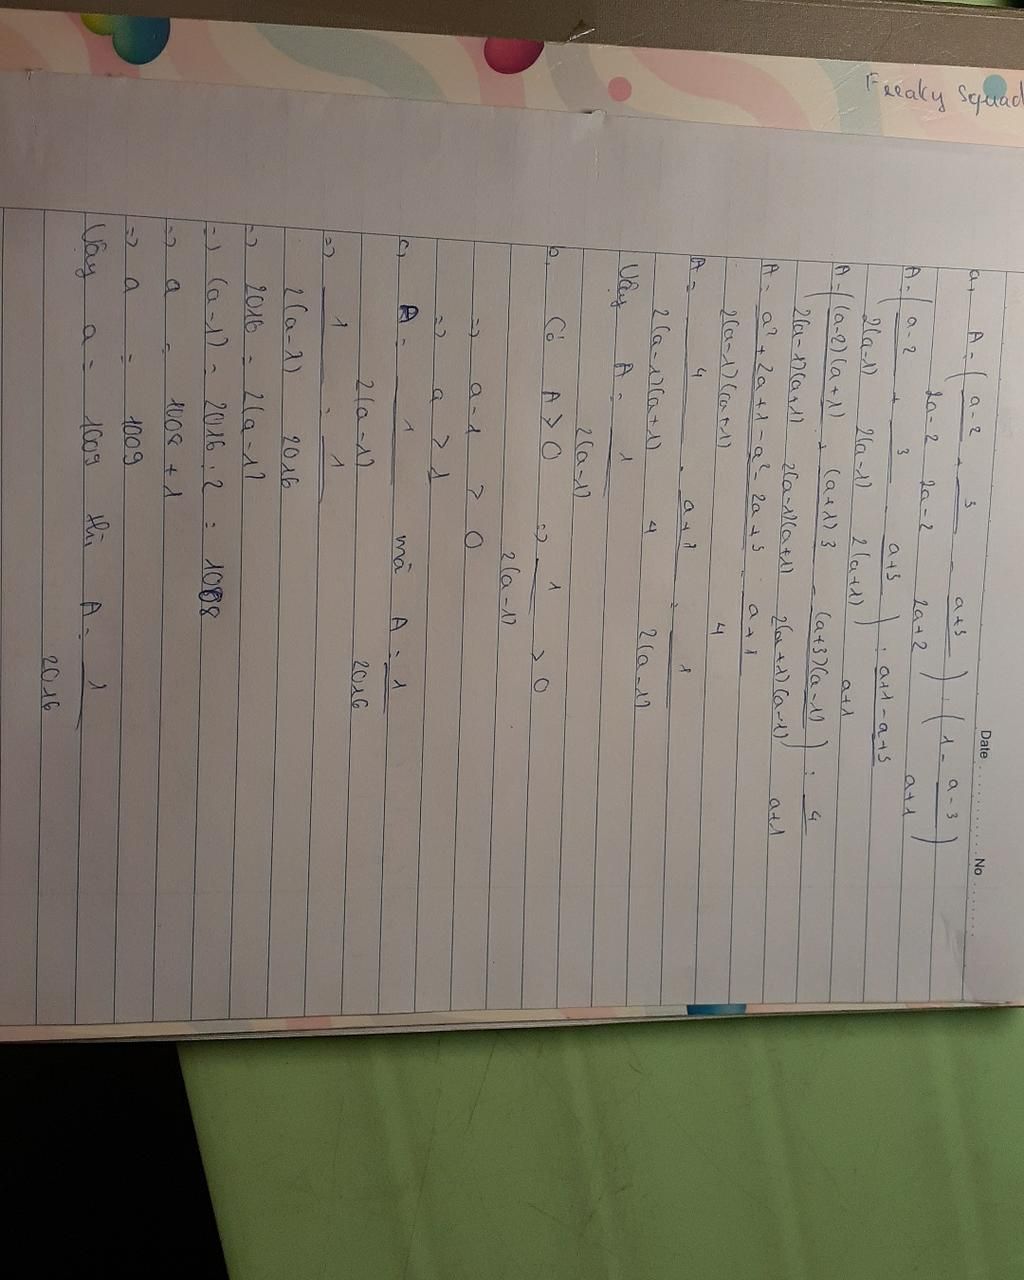 Freaky Squad
Date ............ No ........
a, A = ( a-2 / 2a-2 + 3 / 2a-2 - a+3 / 2a+2 ) : ( 1 - a-3 / a+1 )
A = ( a-2 / 2(a-1) + 3 / 2(a-1) - a+3 / 2(a+1) ) : a+1-a+3 / a+1
A = ( (a-2)(a+1) / 2(a-1)(a+1) + (a+1)3 / 2(a-1)(a+1) - (a+3)(a-1) / 2(a+1)(a-1) ) : 4 / a+1
A = a² + 2a + 1 - a² - 2a + 3 / 2(a-1)(a+1) . a+1 / 4
A = 4 / 2(a-1)(a+1) . a+1 / 4 = 1 / 2(a-1)
Vậy A = 1 / 2(a-1)
b, Có A > 0 => 1 / 2(a-1) > 0
=> a-1 > 0
=> a > 1
c, A = 1 / 2(a-1) mà A = 1 / 2016
=> 1 / 2(a-1) = 1 / 2016
=> 2016 = 2(a-1)
=> (a-1) = 2016 : 2 = 1008
=> a = 1008 + 1
=> a = 1009
Vậy a = 1009 thì A = 1 / 2016